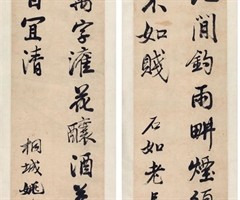 間釣雨畊煙須
不如賤
石如老長
萬字灌花釀酒
自宜清
桐城姚